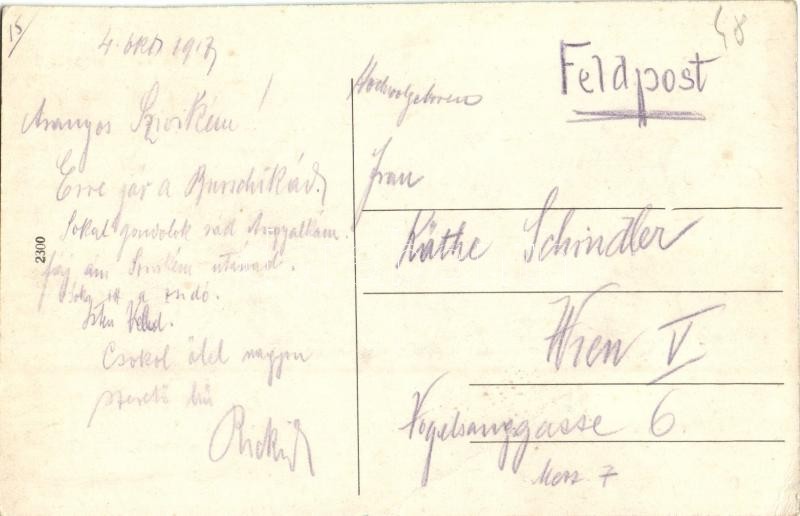 15
48
4. okt. 1917
Aranyos Szivikém!
Erre jár a Burschikád.
Sokat gondolok rád Angyalkám.
fáj ám Szivikém utánad.
Sok itt a zsidó.
Isten Veled.
Csokol ölel nagyon
szerető hű
Rickid
2300
Feldpost
Hochwolgeboren
Frau
Käthe Schindler
Wien V.
Vogelsanggasse 6
Mezz 7